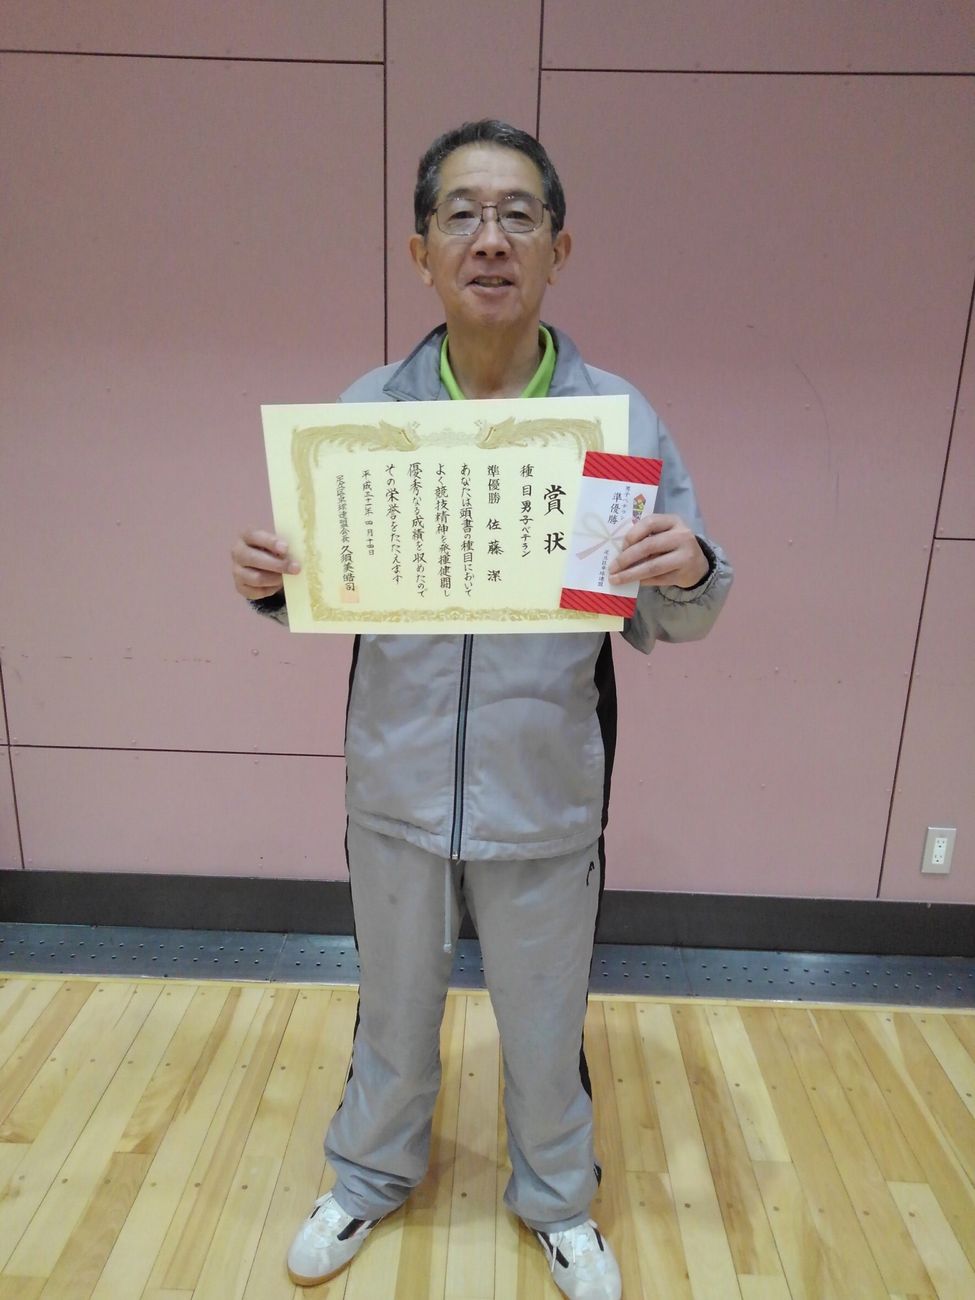 賞状
種目 男子ベテラン
準優勝 佐藤 潔
あなたは頭書の種目において
よく競技精神を発揮健闘し
優秀なる成績を収めたので
その栄誉をたたえます
平成三十一年 四月十四日
足立区卓球連盟会長 久須美皓司
男子ベテラン
準優勝
足立区卓球連盟